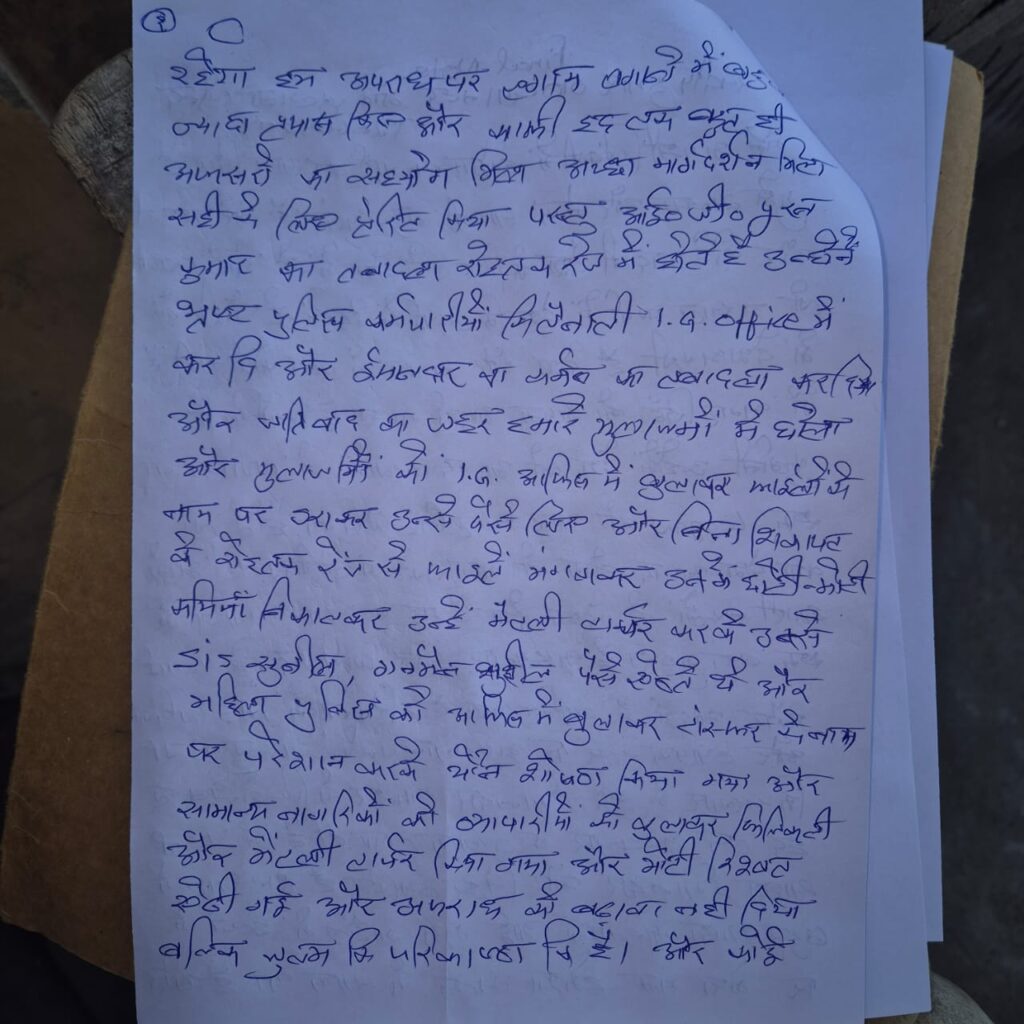 ३
रहेगा इस अपराध पर लगाम लगाने में बहु
ज्यादा प्रयास किए और काफी हद तक बहुत ही
अफसरों का सहयोग मिला अच्छा मार्गदर्शन मिला
सही के लिए प्रेरित किया परन्तु आई० जी० पुरन
कुमार का तबादला रोहतक रेंज में होते है उन्होंने
भ्रष्ट पुलिस कर्मचारीयों कि तैनाती I.G. office में
कर दि और ईमानदार का तबादला कर दिया
और जातिवाद का जहर हमारे मुलाजमों में घोला
और मुलाजमों को I.G. आफिस में बुलाकर फाईलों के
नाम पर डराकर उनसे पैसे लिए और बिना शिकायत
के रोहतक रेंज से फाईलें मंगवाकर उनमें छोटी-मोटी
कमियां निकालकर उन्हें मेंटली टार्चर करके उनसे
सुनील, गनमैन सुशील पैसे ऐंठते थे और
महिला पुलिस को आफिस में बुलाकर ट्रांसफर के नाम
पर परेशान करके यौन शोषण किया गया और
सामान्य नागरिकों को व्यापारीयों को बुलाकर
और मेंटली टार्चर किया गया और मोटी रिश्वत
ऐंठी गई और अपराध को बढावा नही दिया
बल्कि जुल्म कि पराकाष्ठा कि है। और कोई